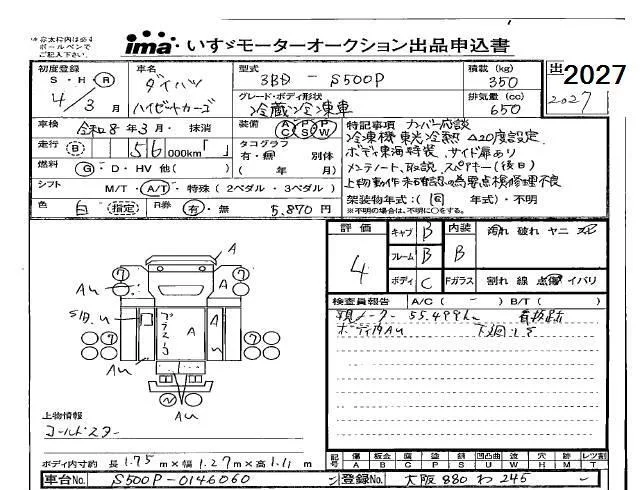 ※赤太枠内は必ず
ボールペンで
ご記入下さい。
ima・いすゞモーターオークション出品申込書
初度登録 車名 型式 積載 (kg) 出 2027
S・H・R ダイハツ 3BD - S500P 350
4/3月 グレード・ボディ形状 排気量 (cc) 2027
ハイゼットカーゴ 冷蔵冷凍車 650
車検 令和8年3月・抹消 装備 AC PS PW 特記事項 ナンバー応談
走行 B 56 000km「 」 タコグラフ 冷凍機 東光冷熱 △20度設定
有・無 別体 ボディ東海特装 サイド扉あり
燃料 G・D・HV 他( ) ( 年 月) メンテノート、取説 スペアキー(後日)
シフト M/T・A/T・特殊 (2ペダル・3ペダル) 上物動作未確認の為要点検修理不良
色 白 (指定) R券 有・無 5,870円 架装物年式:(同 年式)・不明
※不明の場合は、不明に○をする。
評価 4
キャブ B 内装 汚れ 破れ ヤニ
フレーム B B
ボディ C Fガラス 割れ 線 点傷 イバリ
検査員報告 A/C( - ) B/T( )
55.499k
ボディ内AU 下廻りS
A
AU
S1BU
A
A
A
AU
AU
上物情報
コールドスター
ボディ内寸 約 長1.75m×幅1.27m×高1.11m
記号 傷 板金 腐 塗 錆 凹凸曲 波 穴 跡 レンズ割
A B C P S U W H M T
車台No. S500P-0146060 登録No. 大阪 880 わ 245